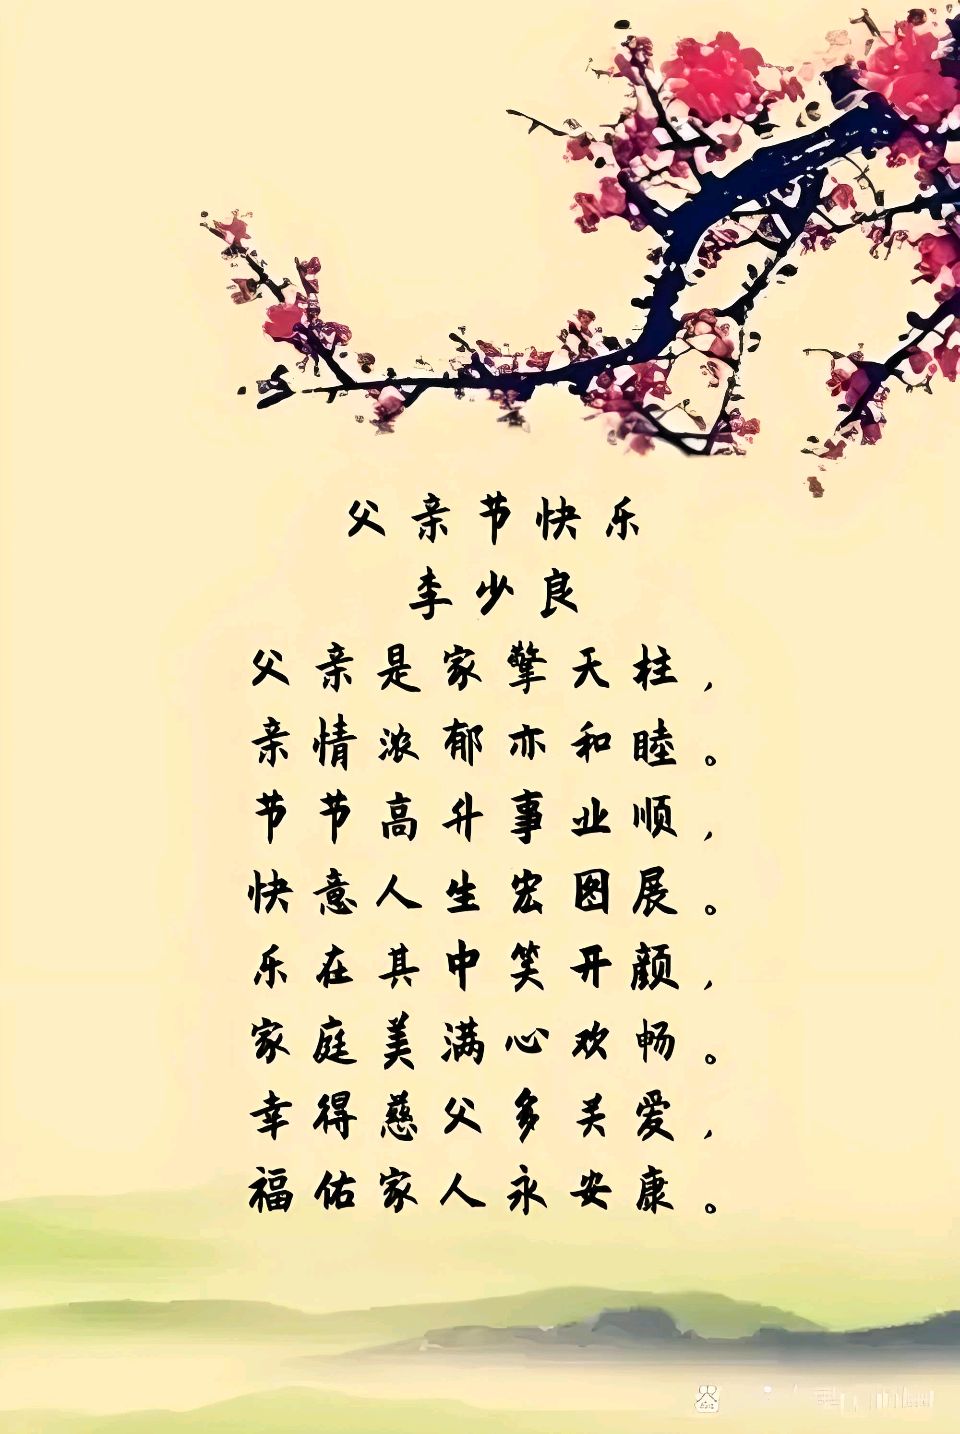 父亲节快乐
李少良
父亲是家擎天柱，
亲情浓郁亦和睦。
节节高升事业顺，
快意人生宏图展。
乐在其中笑开颜，
家庭美满心欢畅。
幸得慈父多关爱，
福佑家人永安康。